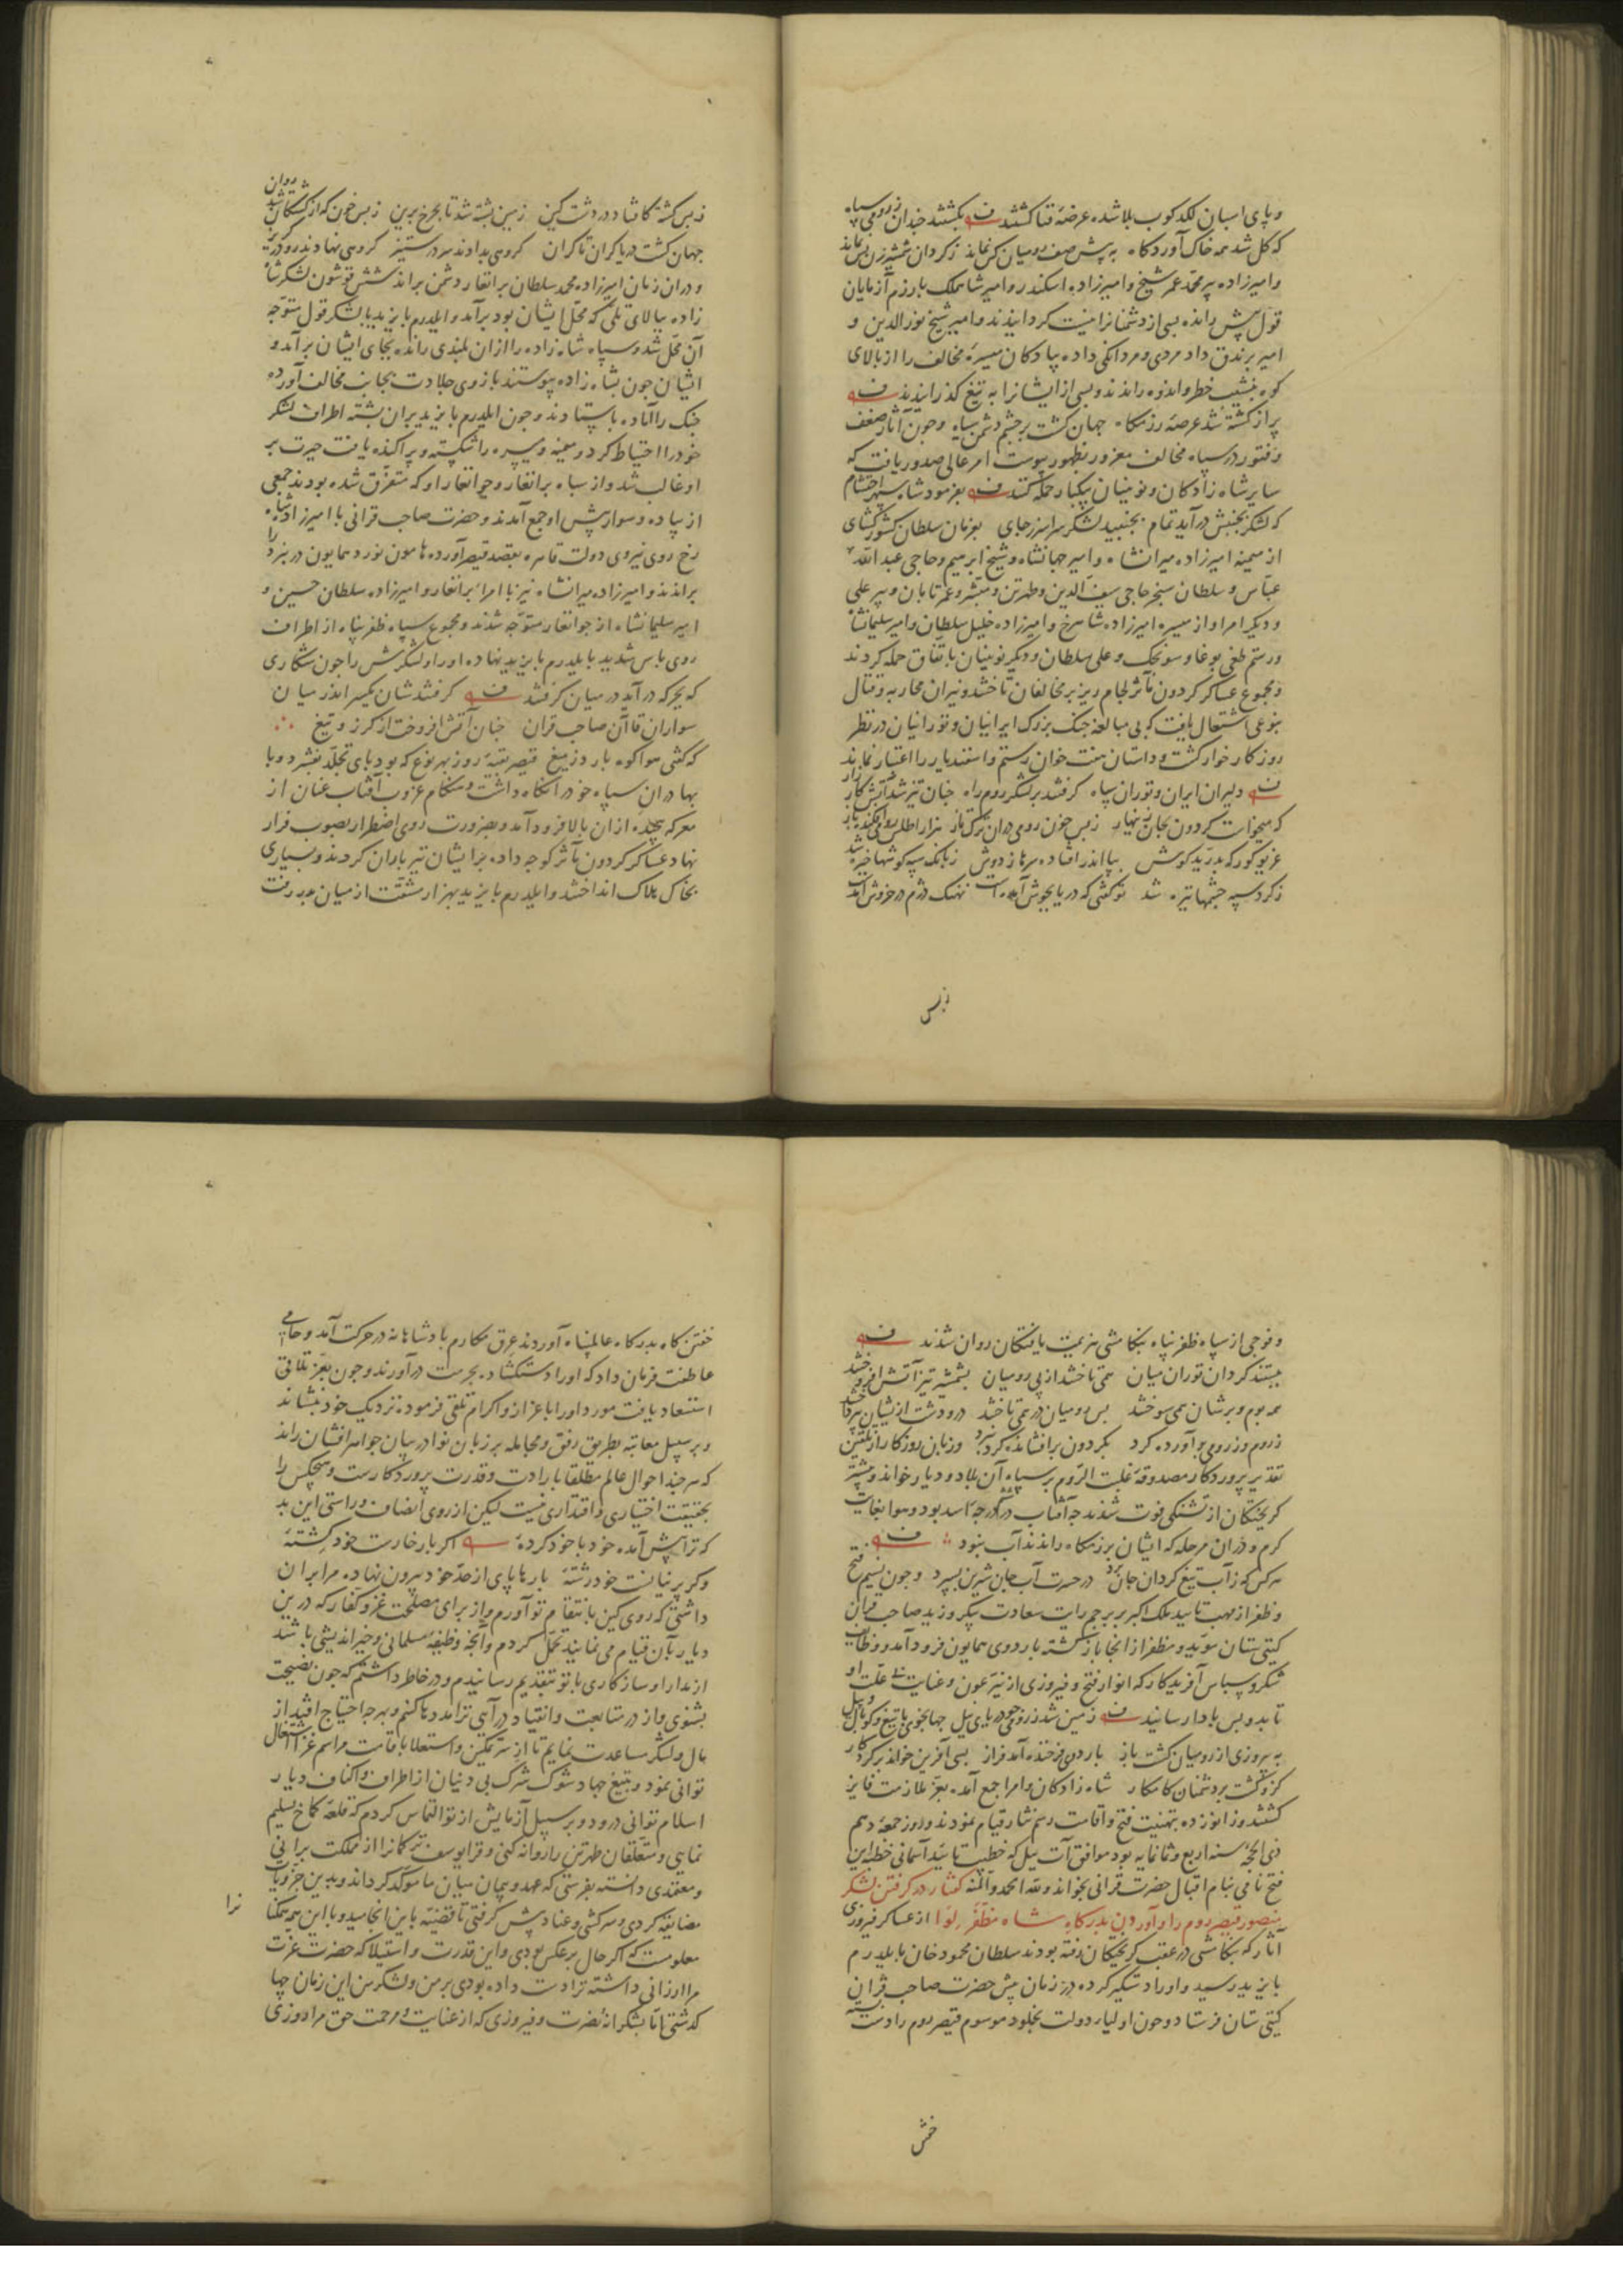 و پای اسبان لکدکوب بلا شده عرضهٔ فنا کشتند بکشتند جندان ز رومی سپاه
که کل شد همه خاک آوردکاه به پیش صف رومیان کس نماند ز کردان شمشیرزن بس نماند
و امیرزاده پیر محمد عمر شیخ و امیرزاده اسکندر و امیر شاهملک با رزم آزمایان
قول پیش رانده بسی از دشمنانرا نیست کردانیدند و امیر شیخ نورالدین و
امیر برندق داد مردی و مردانکی داده پیادکان میسرهٔ مخالف را از بالای
کوه بنشیب خطر و اندوه راندند و بسی از ایشانرا به تیغ کذرانیدند
پر از کشته شد عرصهٔ رزمکاه جهان کشت بر جشم دشمن سیاه و جون آثار ضعف
و فتور در سپاه مخالف مغرور بظهور پیوست امر عالی صدور یافت که
سایر شاه زادکان و نوینیان بیکبار حمله کنند بفرمود شاه سپهر احتشام
که لشکر بجنبش درآید تمام بجنبید لشکر سراسر ز جای بفرمان سلطان کشور کشای
از میمنه امیرزاده میرانشاه و امیر جهانشاه و شیخ ابرهیم و حاجی عبدالله
عباس و سلطان سنجر حاجی سیف الدین و طهرتن و مبشر و عمر تابان و پیر علی
و دیکر امرا و از میسره امیرزاده شاهرخ و امیرزاده خلیل سلطان و امیر سلیمانشاه
و رستم طغی بوغا و سونجک و علی سلطان و دیکر نوینیان باتفاق حمله کردند
و مجموع عساکر کردون مآثر لجام ریز بر مخالفان تاختند و نیران محاربه و قتال
بنوعی اشتعال یافت که بی مبالغه جنک بزرک ایرانیان و تورانیان در نظر
روزکار خوار کشت و داستان هفت خوان رستم و اسفندیار را اعتبار نماند
دلیران ایران و توران سپاه کرفتند بر لشکر روم راه جنان تیز شد آتش کارزار
که میخواست کردون بجان زینهار ز بس خون رومی دران ترکتاز هزار اطلس رومی افکند باز
غریو کورکه بدرید کوش بپا اندر افتاده سرها ز دوش ز بانک سپه کوشها خیره شد
ز کرد سپه جشمها تیره شد تو کفتی که دریا بجوش آمدست نهنک دژم در خروش آمدست
زبس
ز بس کشته کافتاد در دشت کین زمین پشته شد تا بجرخ برین ز بس خون که از کشتکان شد روان
جهان کشت دریا کران تا کران کروهی بدادند سر در ستیز کروهی نهادند رو در کریز
و دران زمان امیرزاده محمد سلطان برانغار دشمن براند شش قوشون لشکر شاه
زاده ببالای تلی که محل ایشان بود برآمد و ایلدرم بایزید با لشکر قول متوجه
آن محل شد و سپاه شاه زاده را ازان بلندی رانده بجای ایشان برآمد و
ایشان جون بشاه زاده پیوستند باز روی جلادت بجانب مخالف آورده
جنک را آماده باستادند و جون ایلدرم بایزید بران پشته اطراف لشکر
خود را احتیاط کرد و میمنه و میسره را شکسته و پراکنده یافت حیرت بر
او غالب شد و از سپاه برانغار و جوانغار او که متفرق شده بودند جمعی
از پیاده و سوار پیش او جمع آمدند و حضرت صاحب قرانی با امیرزاده شاه
رخ روی نیروی دولت قاهره بقصد قیصر آورده هامون نورد همایون در نبرد را
براندند و امیرزاده میرانشاه نیز با امراء برانغار و امیرزاده سلطان حسین و
امیر سلیمانشاه از جوانغار متوجه شدند و مجموع سپاه ظفرپناه از اطراف
روی باس شدید بایلدرم بایزید نهاده او را و لشکرش را جون شکاری
که بجرکه درآید در میان کرفتند کرفتندشان یکسر اندر میان
سواران قاآن صاحب قران جنان آتش افروخت از کرز و تیغ
که کفتی هوا کوه بارد ز میغ قیصر بقیهٔ روز بهر نوع که بود پای تجلد بفشرد و با
بهادران سپاه خود را نکاه داشت و هنکام غروب آفتاب عنان از
معرکه پیجیده ازان بالا فرود آمد و بضرورت روی اضطرار بصوب فرار
نهاد عساکر کردون مآثر کوجه داده بر ایشان تیرباران کردند و بسیاری
بخاک هلاک انداختند و ایلدرم بایزید بهزار مشقت از میان بدر رفت
و فوجی از سپاه ظفرپناه بتکامشی هزیمت یافتکان روان شدند
ببستند کردان توران میان همی تاختند از پی رومیان بشمشیر تیز آتش افروختند
همه بوم و برشان همی سوختند پس رومیان در همی تاختند در و دشت ازیشان بپرداختند
ز روم و ز رومی برآورده کرد بکردون برافشانده کرد نبرد و زبان روزکار از تلقین
تقدیر پروردکار مصدوقهٔ غلبت الروم بر سپاه آن بلاد و دیار خواند و بیشتر
کریختکان از تشنکی فوت شدند جه آفتاب در آخر درجهٔ اسد بود و هوا بغایت
کرم و دران مرحله که ایشان برزمکاه راندند آب نبود
هر کس که ز آب تیغ کردان جان برد در حسرت آب جان شیرین بسپرد و جون نسیم فتح
و ظفر از مهب تایید ملک اکبر بر برجم رایت سعادت پیکر وزید صاحب قران
کیتی ستان موید و مظفر از انجا باز کشته باردوی همایون فرود آمد و وظایف
شکر و سپاس آفریدکار که انوار فتح و فیروزی از نیر عون و عنایت بی علت او
تابد و بس بادا رسانید زمین شد ز رومی جو دریای نیل جهانجوی با تیغ و کوپال و پیل
به پیروزی از رومیان کشت باز باردوی فرخنده آمد فراز بسی آفرین خواند بر کردکار
کزو کشت بر دشمنان کامکار شاه زادکان و امرا جمع آمده بعز ملازمت فایز
کشتند و زانو زده بتهنیت فتح و اقامت رسم نثار قیام نمودند و روز جمعه دهم
ذی الحجه سنه اربع و ثمانمایه بود موافق آت ییل که خطیب تایید آسمانی خطبهٔ این
فتح نامی بنام اقبال حضرت قرانی بخواند و لله الحمد و المنه کفتار در کرفتن لشکر
منصور قیصر روم را و آوردن بدرکاه شاه مظفر لوا از عساکر فیروزی
آثار که بتکامشی در عقب کریختکان رفته بودند سلطان محمود خان بایلدرم
بایزید رسید و او را دستکیر کرده در زمان پیش حضرت صاحب قران
کیتی ستان فرستاد و جون اولیاء دولت بخلود موسوم قیصر روم را دست بسته
ختن
خفتن کاه بدرکاه عالم پناه آوردند عرق مکارم پادشاهانه در حرکت آمد و حامی
عاطفت فرمان داد که او را دست کشاده بحرمت درآورند و جون بعز تلاقی
استسعاد یافت مورد او را باعزاز و اکرام تلقی فرموده نزدیک خود بنشاند
و بر سبیل معاتبه بطریق رفق و مجامله بر زبان نوادر بیان جواهر افشان راند
که هر جند احوال عالم مطلقا بارادت و قدرت پروردکارست و هیجکس را
بحقیقت اختیاری و اقتداری نیست لیکن از روی انصاف و راستی این بد
که ترا پیش آمده خود با خود کردهٔ اکر بار خارست خود کشتهٔ
وکر پرنیانست خود رشتهٔ بارها پای از حد خود بیرون نهاده مرا بران
داشتی که روی کین بانتقام تو آورم و از برای مصلحت غزو کفار که درین
دیار بآن قیام می نمایند تحمل کردم و آنجه وظیفهٔ مسلمانی و خیراندیشی باشد
از مدارا و سازکاری با تو بتقدیم رسانیدم و در خاطر داشتم که جون نصیحت
بشنوی و از در متابعت و انقیاد درآیی ترا مدد ها کنم و بهرجه احتیاج افتد از
مال و لشکر مساعدت نمایم تا از سر تمکین و استعلا باقامت مراسم غزا اشتغال
توانی نمود و بتیغ جهاد شوک شرک بی دینان از اطراف و اکناف دیار
اسلام توانی درود و بر سبیل آزمایش از تو التماس کردم که قلعه کماخ تسلیم
نمایی و متعلقان طهرتن را روانه کنی و قرا یوسف ترکمانرا از مملکت برانی
و معتمدی دانسته بفرستی که عهد و پیمان میان ما موکد کرداند و بدین جزویات
مضایقه کردی و سرکشی و عناد پیش کرفتی تا قضیه باین انجامید و با این همه همکنانرا
معلومست که اکر حال بر عکس بودی و این قدرت و استیلا که حضرت عزت
مرا ارزانی داشته ترا دست داده بودی بر من و لشکر من این زمان جها
کذشتی اما بشکرانهٔ نصرت و فیروزی که از عنایت و مرحمت حق مرا روزی